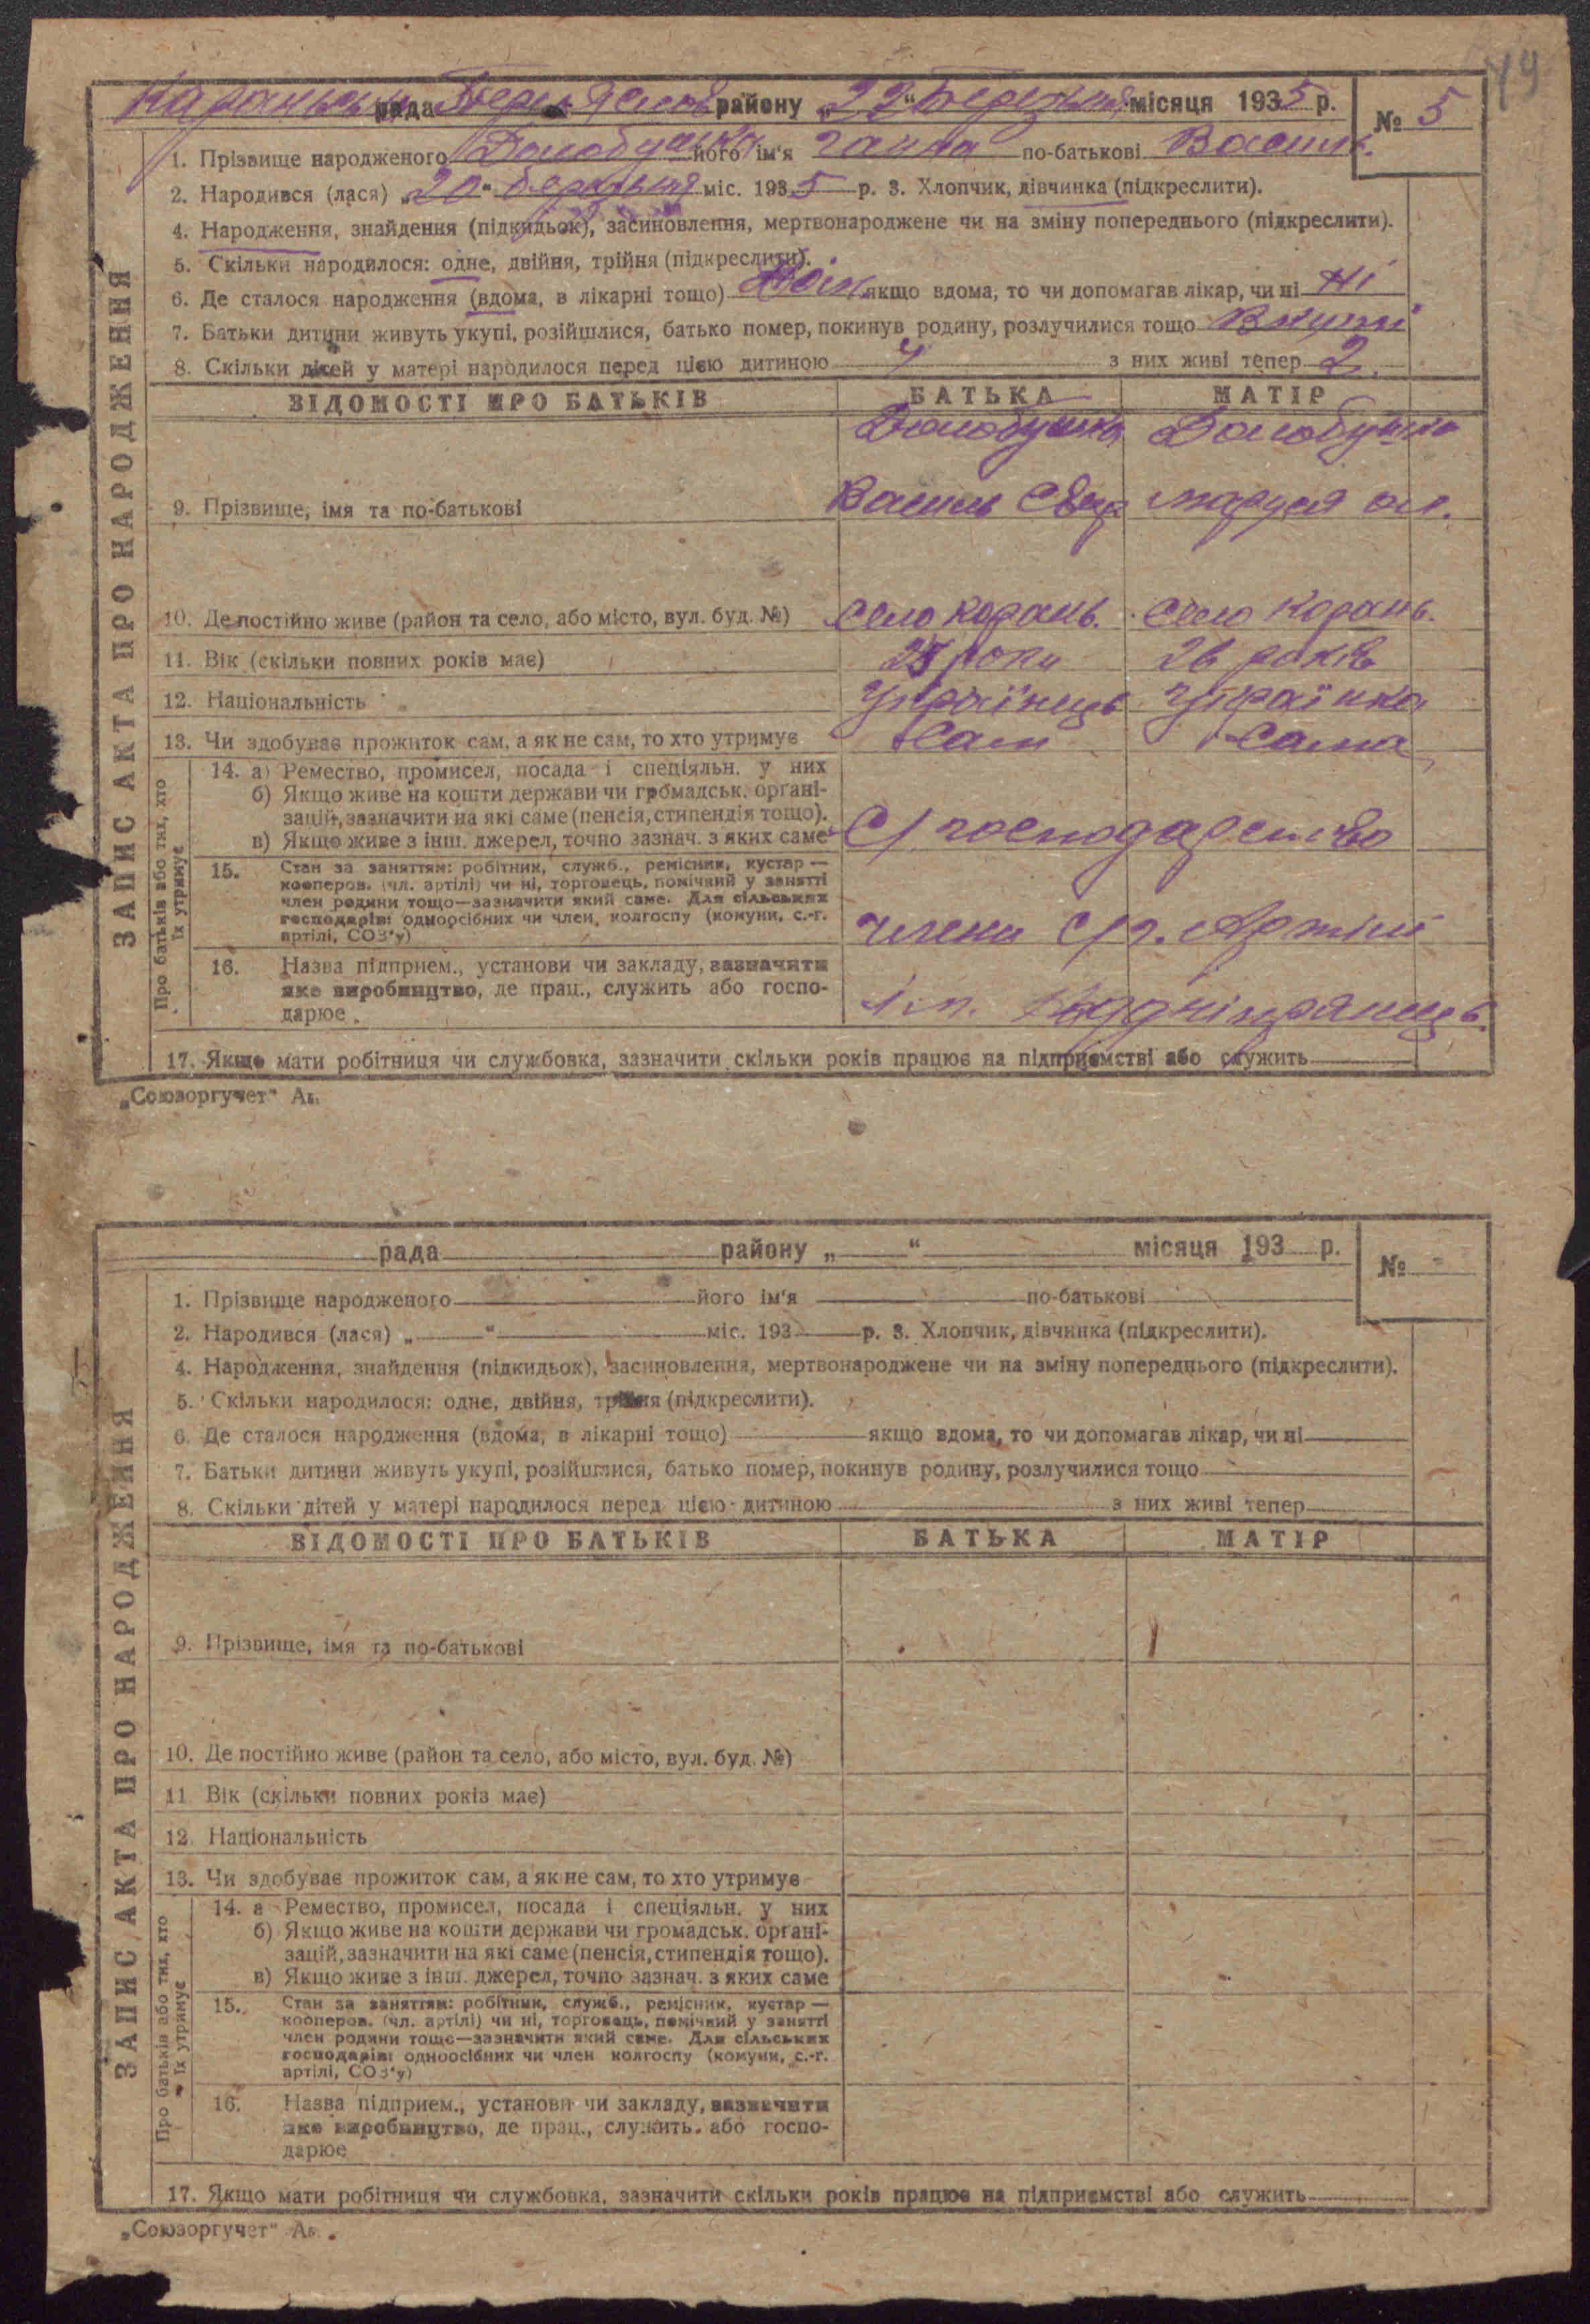 49
рада району „22“ Березня місяця 1935 р. № 5
1. Прізвище народженого його ім'я Ганна по-батькові Васил.
2. Народився (лася) „20“ березня міс. 1935 р. 3. Хлопчик, дівчинка (підкреслити).
4. Народження, знайдення (підкидьок), засиновлення, мертвонароджене чи на зміну попереднього (підкреслити).
5. Скільки народилося: одне, двійня, трійня (підкреслити).
6. Де сталося народження (вдома, в лікарні тощо) якщо вдома, то чи допомагав лікар, чи ні Ні
7. Батьки дитини живуть укупі, розійшлися, батько помер, покинув родину, розлучилися тощо Вкупі
8. Скільки дітей у матері народилося перед цією дитиною 4 з них живі тепер 2.
ВІДОМОСТІ ПРО БАТЬКІВ БАТЬКА МАТІР
9. Прізвище, імя та по-батькові Василь Маруся
10. Де постійно живе (район та село, або місто, вул. буд. №) село Корань. село Корань.
11. Вік (скільки повних років має) роки 26 років
12. Національність Українець Українка
13. Чи здобуває прожиток сам, а як не сам, то хто утримує Сам Сама
Про батьків або тих, хто їх утримує
14. а) Ремество, промисел, посада і спеціяльн. у них
б) Якщо живе на кошти держави чи громадськ. органі-
зацій, зазначити на які саме (пенсія, стипендія тощо).
в) Якщо живе з інш. джерел, точно зазнач. з яких саме С/господарство
15. Стан за заняттям: робітник, служб., ремісник, кустар —
кооперов. (чл. артілі) чи ні, торговець, помічний у занятті
член родини тощо—зазначити який саме. Для сільських
господарів: одноосібних чи член колгоспу (комуни, с.-г.
артілі, СОЗ'у) члени С/г. Артілі
16. Назва підприєм., установи чи закладу, зазначити
яке виробництво, де прац., служить або госпо-
дарює
17. Якщо мати робітниця чи службовка, зазначити скільки років працює на підприємстві або служить
ЗАПИС АКТА ПРО НАРОДЖЕННЯ
„Союзоргучет“
рада району „ “ місяця 193 р. №
1. Прізвище народженого його ім'я по-батькові
2. Народився (лася) „ “ міс. 193 р. 3. Хлопчик, дівчинка (підкреслити).
4. Народження, знайдення (підкидьок), засиновлення, мертвонароджене чи на зміну попереднього (підкреслити).
5. Скільки народилося: одне, двійня, трійня (підкреслити).
6. Де сталося народження (вдома, в лікарні тощо) якщо вдома, то чи допомагав лікар, чи ні
7. Батьки дитини живуть укупі, розійшлися, батько помер, покинув родину, розлучилися тощо
8. Скільки дітей у матері народилося перед цією дитиною з них живі тепер
ВІДОМОСТІ ПРО БАТЬКІВ БАТЬКА МАТІР
9. Прізвище, імя та по-батькові
10. Де постійно живе (район та село, або місто, вул. буд. №)
11. Вік (скільки повних років має)
12. Національність
13. Чи здобуває прожиток сам, а як не сам, то хто утримує
Про батьків або тих, хто їх утримує
14. а Ремество, промисел, посада і спеціяльн. у них
б) Якщо живе на кошти держави чи громадськ. органі-
зацій, зазначити на які саме (пенсія, стипендія тощо).
в) Якщо живе з інш. джерел, точно зазнач. з яких саме
15. Стан за заняттям: робітник, служб., ремісник, кустар —
кооперов. (чл. артілі) чи ні, торговець, помічний у занятті
член родини тощо—зазначити який саме. Для сільських
господарів: одноосібних чи член колгоспу (комуни, с.-г.
артілі, СОЗ'у)
16. Назва підприєм., установи чи закладу, зазначити
яке виробництво, де прац., служить або госпо-
дарює
17. Якщо мати робітниця чи службовка, зазначити скільки років працює на підприємстві або служить
ЗАПИС АКТА ПРО НАРОДЖЕННЯ
„Союзоргучет“